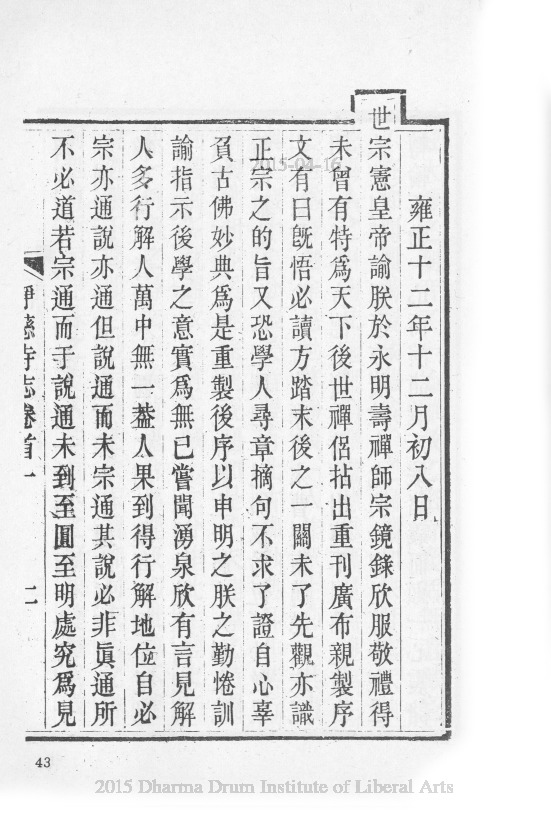 雍正十二年十二月初八日
世宗憲皇帝諭朕於永明壽禪師宗鏡錄欣服敬禮得
未曾有特爲天下後世禪侶拈出重刊廣布親製序
文有曰既悟必讀方踏末後之一關未了先觀亦識
正宗之的旨又恐學人尋章摘句不求了證自心辜
負古佛妙典爲是重製後序以申明之朕之勤惓訓
諭指示後學之意實爲無已嘗聞湧泉欣有言見解
人多行解人萬中無一葢人果到得行解地位自必
宗亦通說亦通但說通而未宗通其說必非眞通所
不必道若宗通而于說通未到至圓至明處究爲見
淨慈寺志卷首一
二
43
2015-04-16
2015 Dharma Drum Institute of Liberal Arts